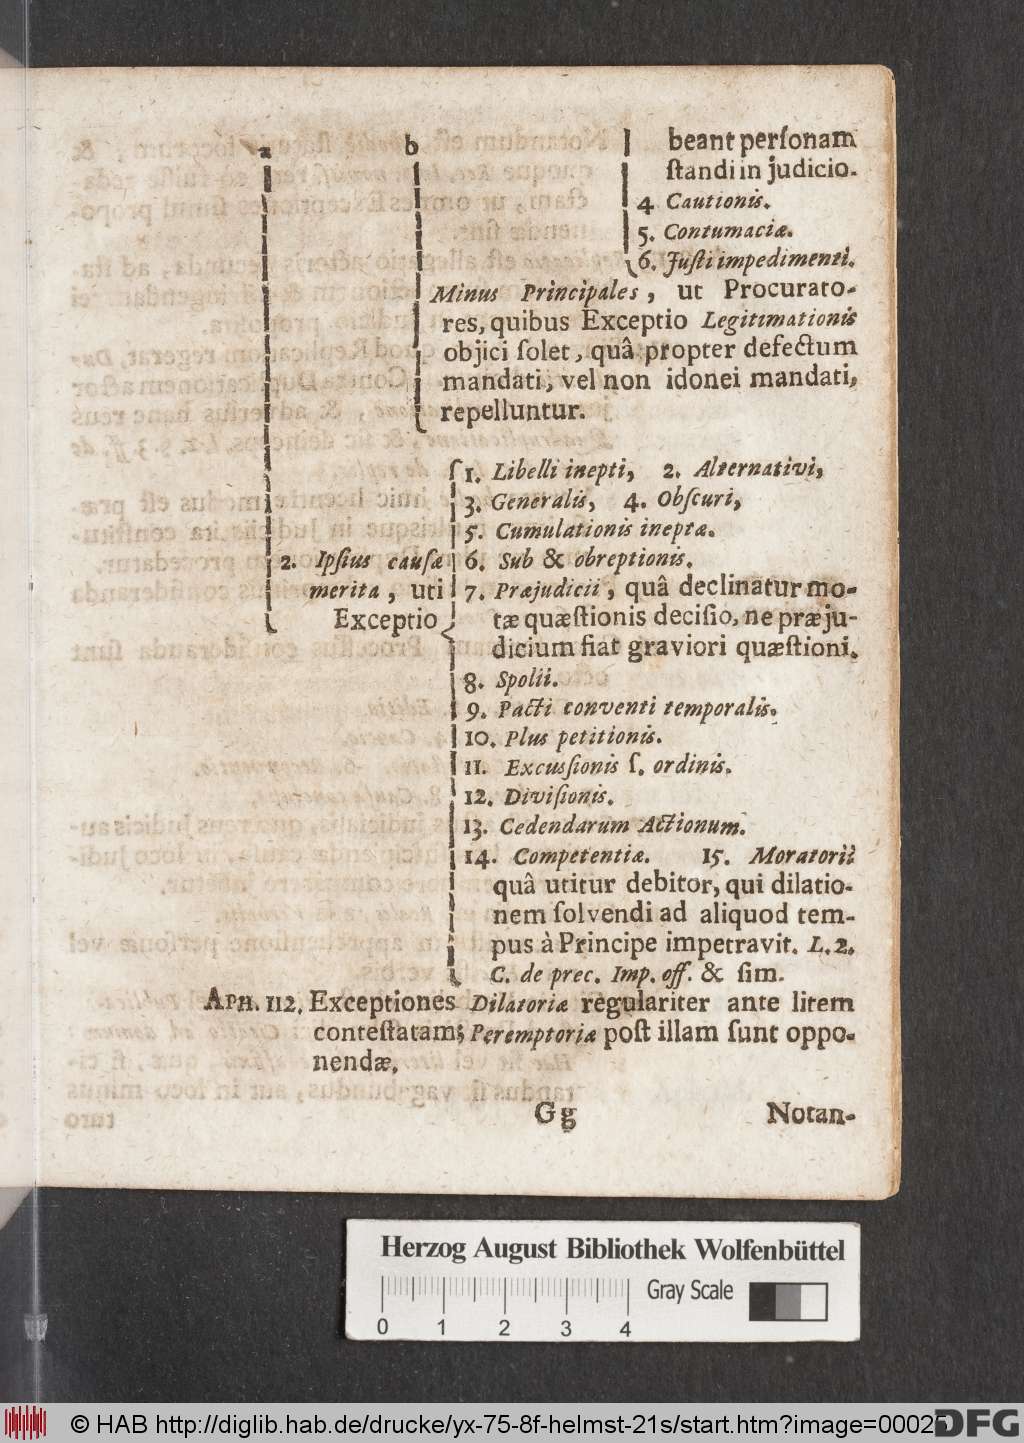 a b beant perſonam
ſtandi in judicio.
4 Cautionis.
5. Contumaciæ.
6. Juſti impedimenti.
Minus Principales, ut Procurato-
res, quibus Exceptio Legitimationis
objici ſolet, quâ propter defectum
mandati, vel non idonei mandati,
repelluntur.
1. Libelli inepti, 2. Alternativi,
3. Generalis, 4. Obſcuri,
5. Cumulationis ineptæ.
2. Ipſius cauſæ 6. Sub & obreptionis.
merita, uti 7. Præjudicii, quâ declinatur mo-
Exceptio tæ quæſtionis deciſio, ne præju-
dicium fiat graviori quæſtioni.
8. Spolii.
9. Pacti conventi temporalis.
10. Plus petitionis.
11. Excusſionis ſ. ordinis.
12. Diviſionis.
13. Cedendarum Actionum.
14. Competentiæ. 15. Moratorii
quâ utitur debitor, qui dilatio-
nem ſolvendi ad aliquod tem-
pus à Principe impetravit. L. 2.
C. de prec. Imp. off. & ſim.
APH. 112. Exceptiones Dilatoriæ regulariter ante litem
conteſtatam; Peremptoriæ poſt illam ſunt oppo-
nendæ.
Gg Notan-
Herzog August Bibliothek Wolfenbüttel
Gray Scale
0 1 2 3 4
© HAB http://diglib.hab.de/drucke/yx-75-8f-helmst-21s/start.htm?image=00025
DFG